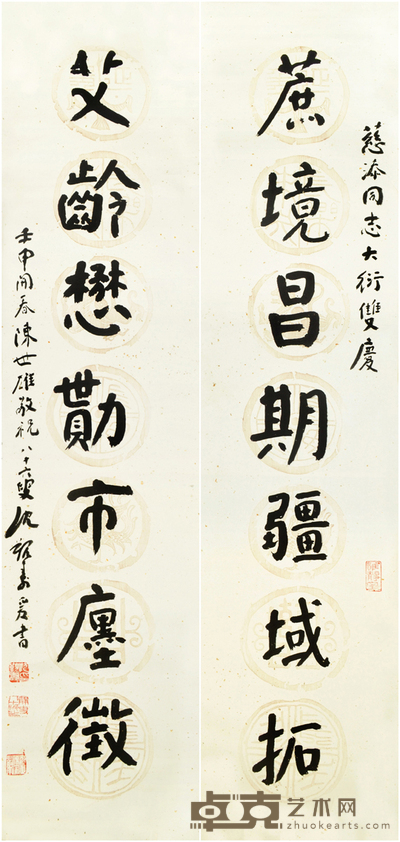 慈添同志大衍雙慶
蔗境昌期疆域拓
艾齡懋勩市廛徵
壬申開春陳世雄敬祝八十六叟沈覲壽爰書
卓克艺术网
zhuokearts.com